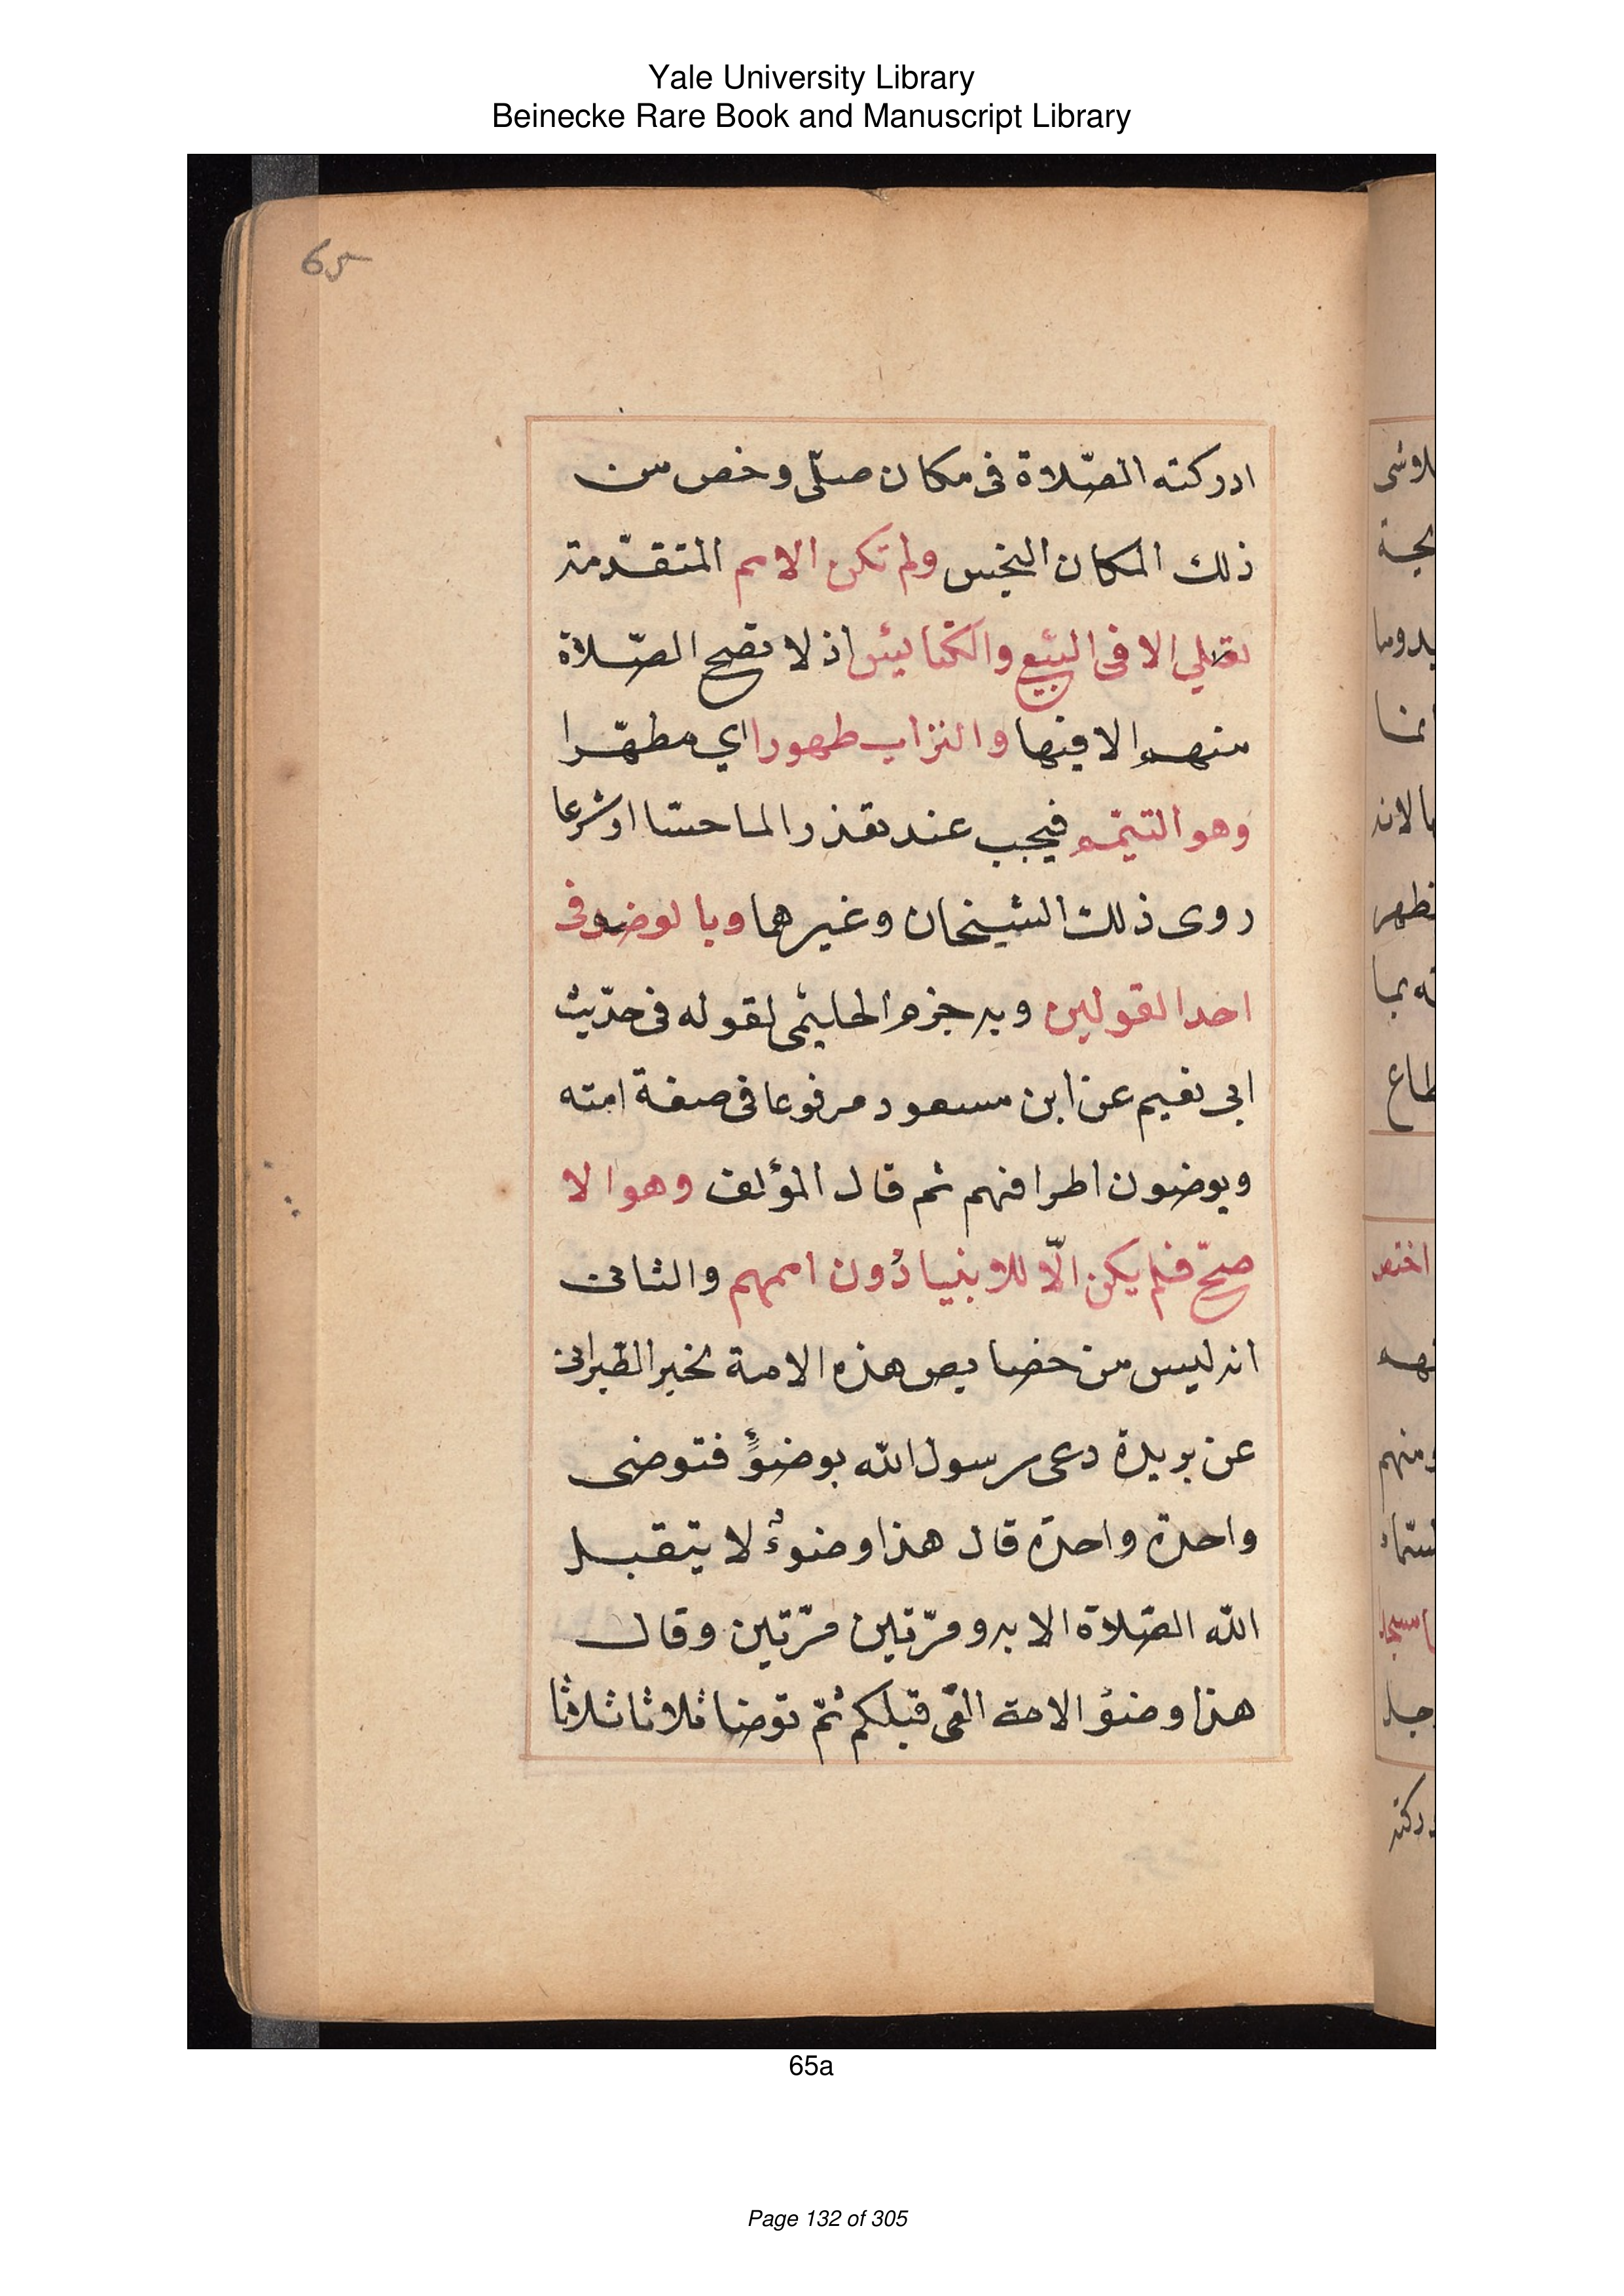 Yale University Library
Beinecke Rare Book and Manuscript Library
65
ادركته الصّلاة فى مكان صلّى وخص من
ذلك المكان النجس ولم تكن الامم المتقدّمة
تصلي الا فى البيع والكنايئس اذ لا تصح الصّلاة
منهم الا فيها والتراب طهورا اي مطهّرا
وهو التيمّم فيجب عند تعذر الما حسّا او شرعا
روى ذلك الشيخان وغيرهما وبالوضو فى
احد القولين وبه جزم الحليمى لقوله فى حديث
ابي نعيم عن ابن مسعود مرفوعا فى صفة امته
ويوضون اطرافهم ثم قال المؤلف وهو الا
صحّ فلم يكن الّا للانبيا دُون اممهم والثانى
انه ليس من خصايص هذه الامة لخبر الطبرانى
عن بريدة دعى رسول الله بوضوءٍ فتوضى
واحدة واحدة قال هذا وضوءٌ لا يتقبل
الله الصّلاة الا به ومرّتين مرّتين وقال
هذا وضؤ الامة التى قبلكم ثمّ توضا ثلاثا ثلاثا
65a
Page 132 of 305